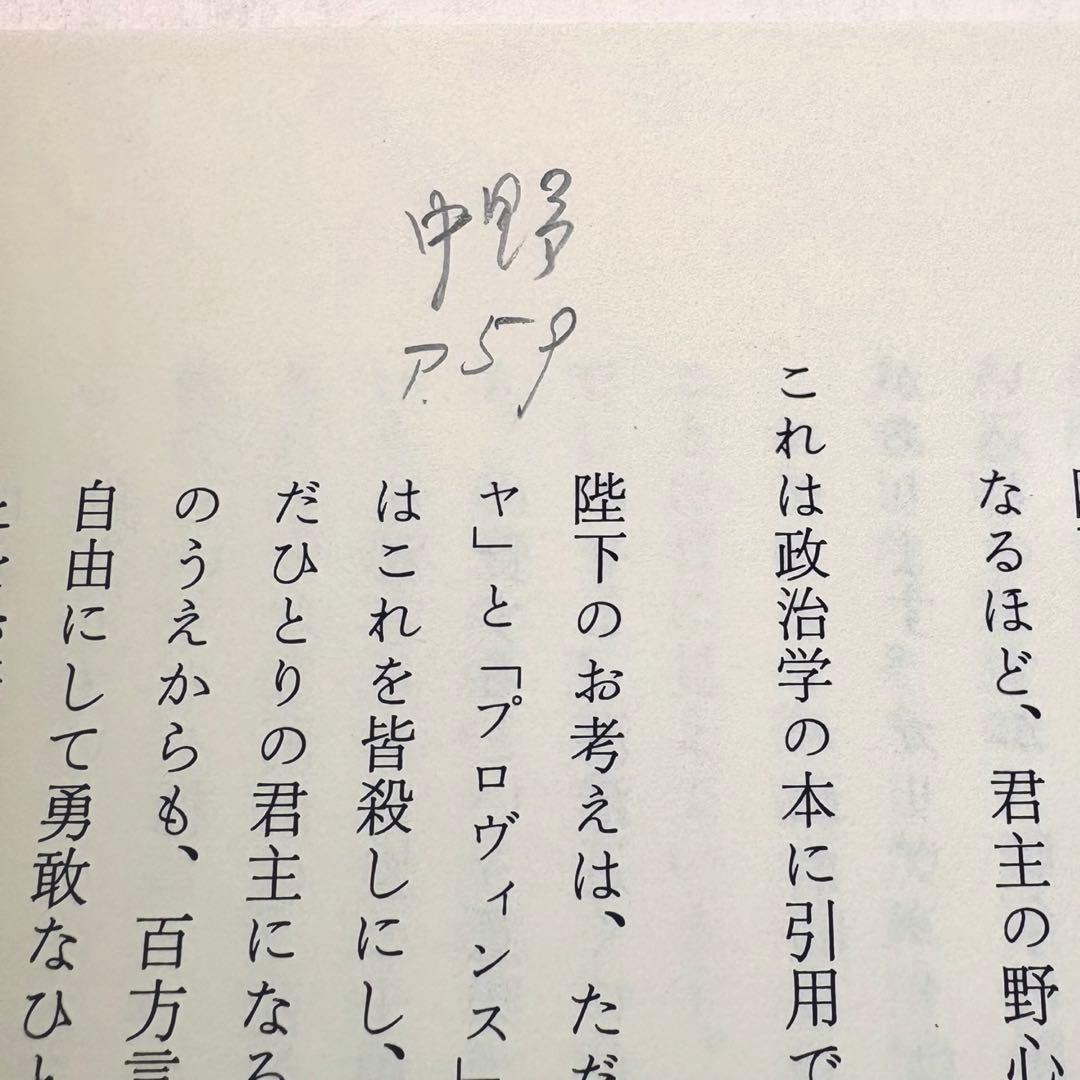 中野
P.59
なるほど、君主の野心
これは政治学の本に引用で
陛下のお考えは、ただ
ヤ」と「プロヴィンス」
はこれを皆殺しにし、
だひとりの君主になる
のうえからも、百方言
自由にして勇敢なひと